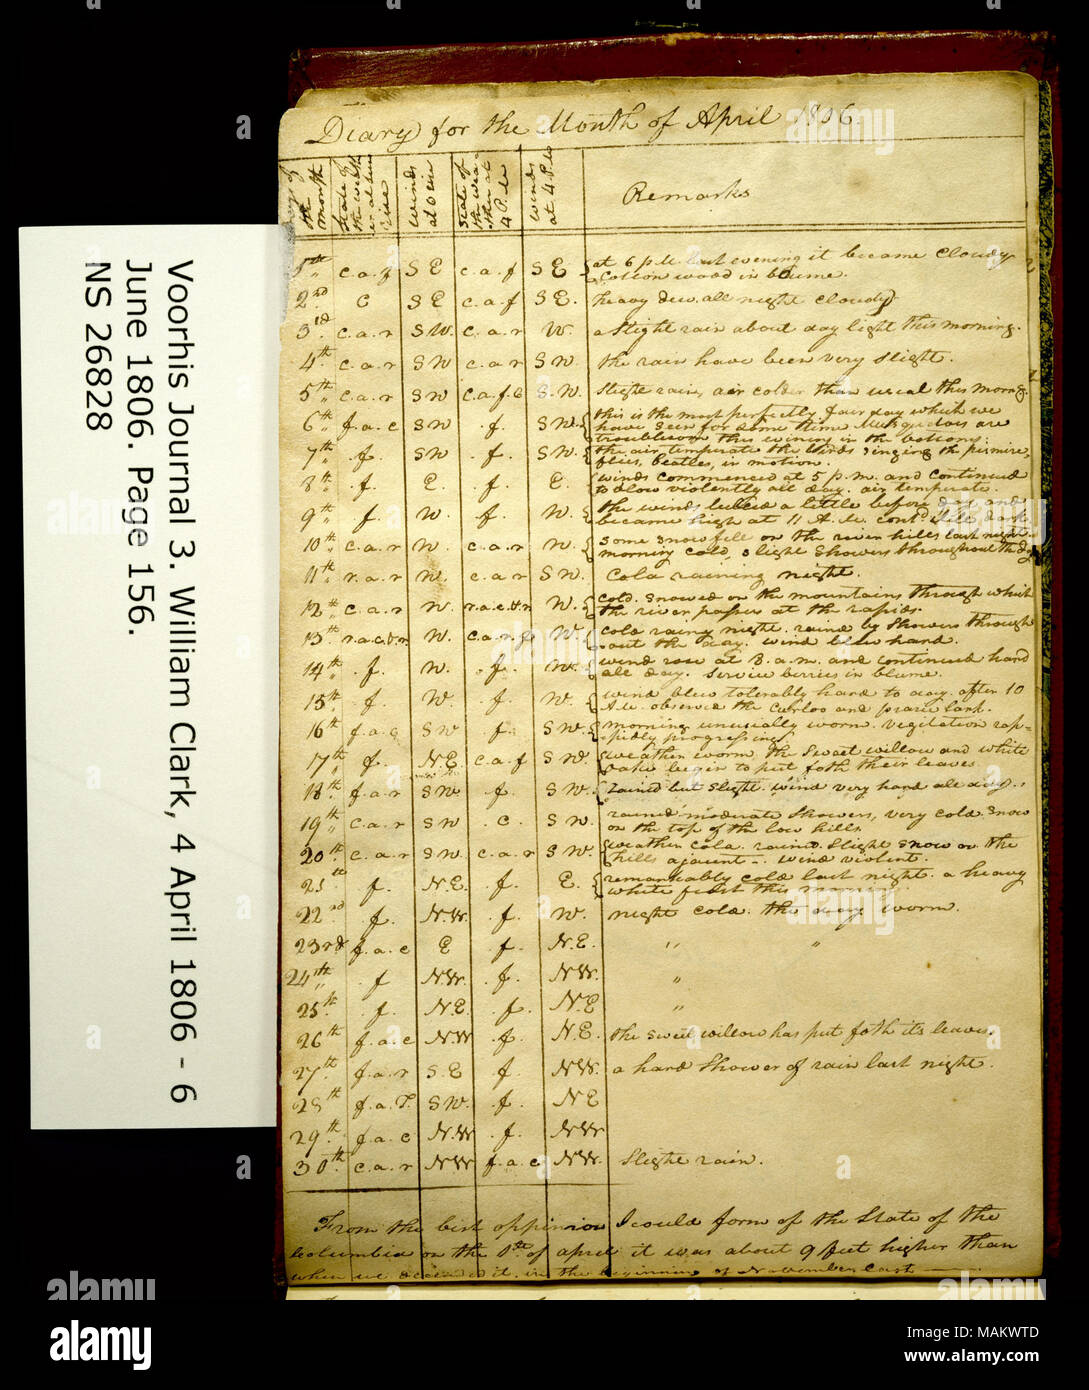 Voorhis Journal 3. William Clark, 4 April 1806 - 6
June 1806. Page 156.
NS 26828
Diary for the Month of April 1806.
Days of the month | State of the weather at sun rise | Winds at Sun | State of the weather at 4 P.M | Winds at 4 P.M | Remarks
1st c.a.f S E c.a.f S E at 6 p.m. last evening it became Cloudy
Cotton wood in blume.
2nd C S E c.a.f S E. heavy dew. all night cloudy
3rd c.a.r S W. c.a.r W. a Slight rain about day light this morning.
4th c.a.r S W c.a.r S W. the rain have been very slight.
5th c.a.r S W c.a.f S. W. Slight rain, air colder than usial this morng.
6th f.a.c S W .f. S W. this is the most perfectly fair day which we
have seen for some time Musquetors are
troublesom this evening in the bottoms.
7th .f. S W. .f. S W. the air temperate the birds singing the pismires,
flies, beatles, in motion.
8th .f. E. .f. E. winds commenced at 5 p.m. and continued
to blow violently all day. air temperate.
9th f. W. .f. W. the winds lulled a little before day and
became high at 11 A.M. contd till dark
10th c.a.r W. c.a.r W. some snow fell on the river hills last night.
morning cold, slight showers throughout the day
11th r.a.r W. c.a.r S W. cold raining night.
12th c.a.r W. r.a.c.&r W. cold. Snowed on the mountains through which
the river passes at the rapids.
13th r.a.c&r W. c.a.r.&f W. cold rainy night. rained by showers through
out the day. wind blew hard.
14th .f. W. .f. W. wind rose at 8 a.m. and continued hard
all day. Service berries in blume.
15th .f. W. f. W. wind blew tolerably hard to day. after 10
A.M. observed the Curloo and prarie lark.
16th f.a.c S W .f. S W. morning unusially worm. vegitation rap-
pidly progressing
17th .f. N E. c.a.f S W. weather worm. the Sweet willow and white
oake begin to put foth their leaves
18th f.a.r S W .f. S W. rained but slight. wind very hard all day.
19th c.a.r S W .c. S W. rained moderate showers, very cold. snow
on the top of the low hills
20th c.a.r S W. c.a.r S W. weather cold. rained slight snow on the
hills ajacent. wind violent.
21st .f. N.E. .f. E. remarkably cold last night. a heavy
white frost this morning
22nd .f. N.W. .f. W. night cold. the day worm.
23rd f.a.c E f. N.E. " "
24th f N.W. .f. NW. "
25th .f. N.E. .f. N E "
26th f.a.c N.W .f. N.E. the sweet willow has put foth its leaves.
27th f.a.r S.E f. N.W. a hard Shower of rain last night.
28th f.a.T. S W. .f. N E
29th f.a.c N.W .f. NW
30th c.a.r NW f.a.c NW. Slight rain.
From the best oppinion I could form of the State of the
Columbia on the 1st of april it was about 9 feet higher than
when we decended it, in the begining of November last
alamy
a
Image ID: MAKWTD
www.alamy.com